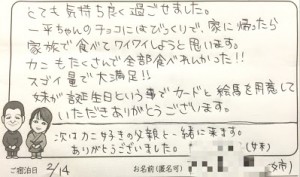 とても気持ち良く過ごせました。
一平ちゃんのチョコにはびっくりで、家に帰ったら
家族で食べてワイワイしようと思います。
カニもたくさんで全部食べきれんかった!!
スゴイ量で大満足!!
妹が誕生日という事でカードと絵馬を用意して
いただきありがとうございます。
次はカニ好きの父親と一緒に来ます。
ありがとうございました。
ご宿泊日 2/14
お名前(匿名可)